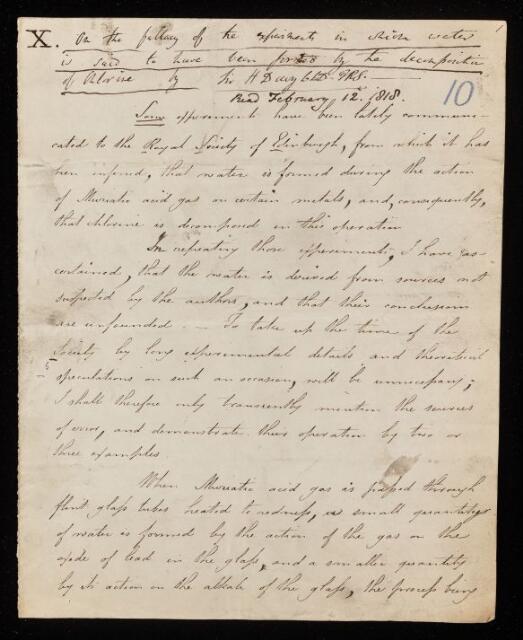 X. On the fallacy of the experiments in which water
is said to have been formed by the decomposition
of chlorine by Sir H Davy LLD. FRS.
Read February 12. 1818.
10
Some experiments have been lately communi-
cated to the Royal Society of Edinburgh, from which it has
been inferred, that water is formed during the action
of Muriatic acid gas on certain metals, and, consequently,
that chlorine is decomposed in this operation
In repeating those experiments, I have as-
certained, that the water is derived from sources not
suspected by the authors, and that their conclusions
are unfounded. To take up the time of the
Society by long experimental details and theoretical
speculations on such an occasion, will be unnecessary;
I shall therefore only transiently mention the sources
of error, and demonstrate their operation by two or
three examples
When Muriatic acid gas is passed through
flint glass tubes heated to redness, a small quantity
of water is formed by the action of the gas on the
oxide of lead in the glass, and a smaller quantity
by its action on the alkali of the glass, the process being